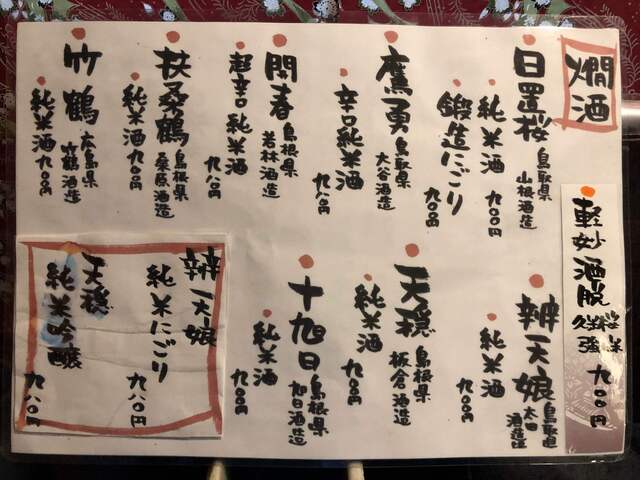 燗酒
日置桜 鳥取県 山根酒造
純米酒 九〇〇円
鍛造にごり 九〇〇円
鷹勇 鳥取県 大谷酒造
辛口純米酒 九八〇円
開春 島根県 若林酒造
超辛口純米酒 九八〇円
扶桑鶴 島根県 桑原酒造
純米酒 九〇〇円
竹鶴 広島県 竹鶴酒造
純米酒 九〇〇円
軽妙酒脱
九〇〇円
辨天娘 鳥取県 太田酒造
純米酒 九〇〇円
天穏 島根県 板倉酒造
純米酒 九〇〇円
十旭日 島根県 旭日酒造
純米酒 九〇〇円
辨天娘
純米にごり 九八〇円
天穏
純米吟醸 九八〇円